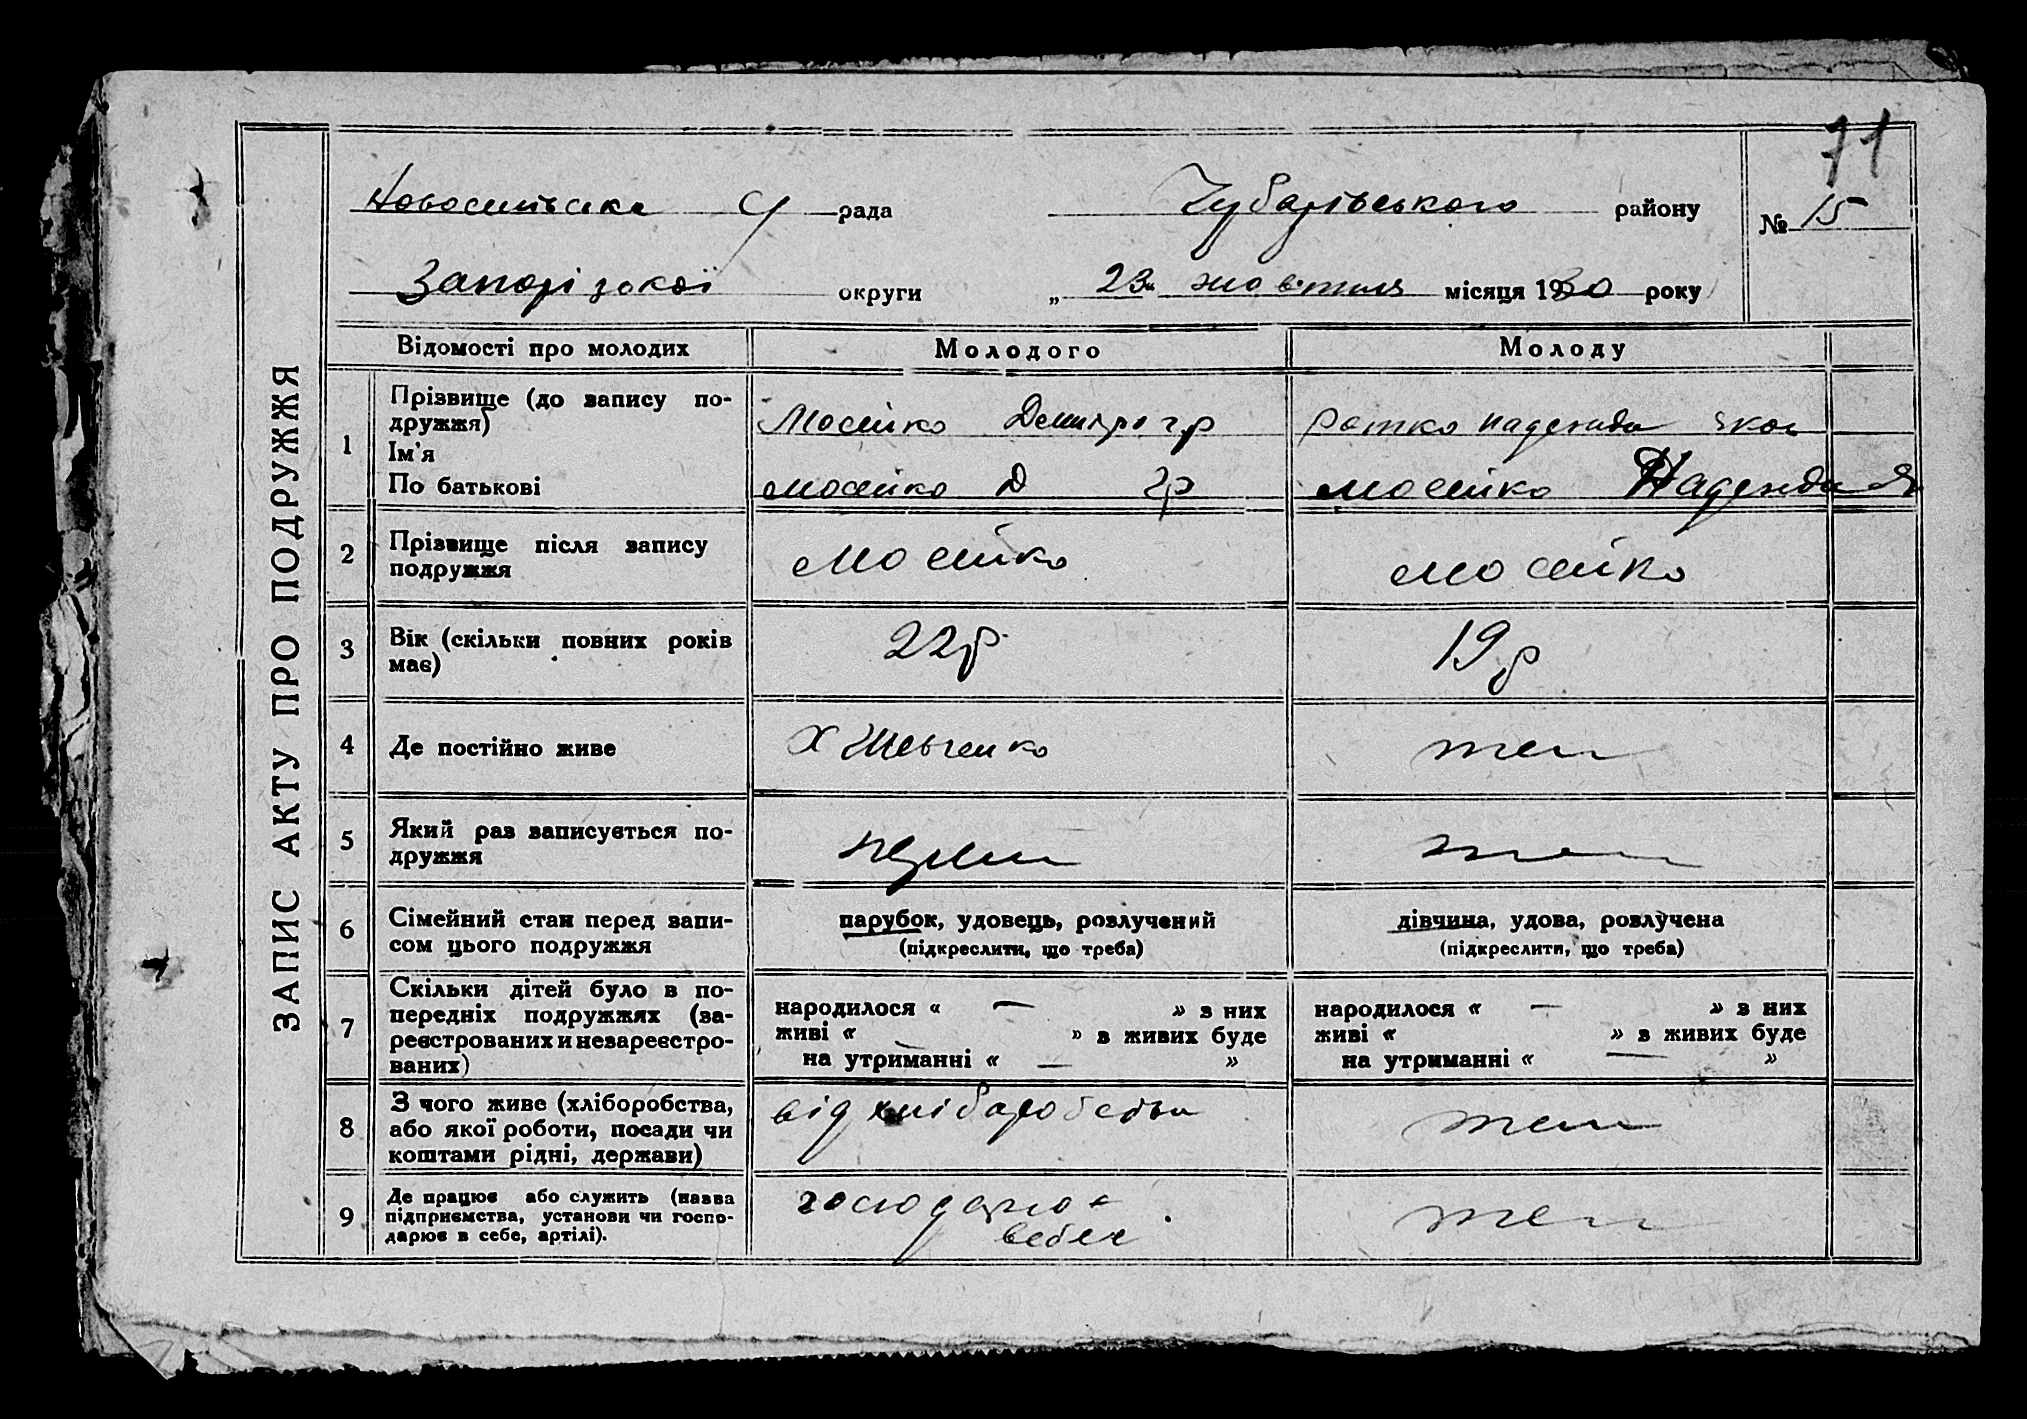 71
рада Чубарівського району № 15
Запорізької округи „ 23 " жовтня місяця 1930 року
ЗАПИС АКТУ ПРО ПОДРУЖЖЯ
Відомості про молодих Молодого Молоду
1 Прізвище (до запису по-
дружжя)
Ім'я
По батькові
Мосійко Демидро гр
мосійко Д гр
Надежда
мосійко Надежда Я
2 Прізвище після запису
подружжя
Мосійко
мосійко
3 Вік (скільки повних років
має)
22 р
19 р
4 Де постійно живе
Х Шевченко
теш
5 Який раз записується по-
дружжя
перши
теш
6 Сімейний стан перед запи-
сом цього подружжя
парубок, удовець, розлучений
(підкреслити, що треба)
дівчина, удова, розлучена
(підкреслити, що треба)
7 Скільки дітей було в по-
передніх подружжях (за-
реєстрованих и незареєстро-
ваних)
народилося « — » з них
живі « » з живих буде
на утриманні « — »
народилося « — » з них
живі « » з живих буде
на утриманні « — »
8 З чого живе (хліборобства,
або якої роботи, посади чи
коштами рідні, держави)
від хліборобства
теш
9 Де працює або служить (назва
підприємства, установи чи госпо-
дарює в себе, артілі).
господарює
в себе
теш